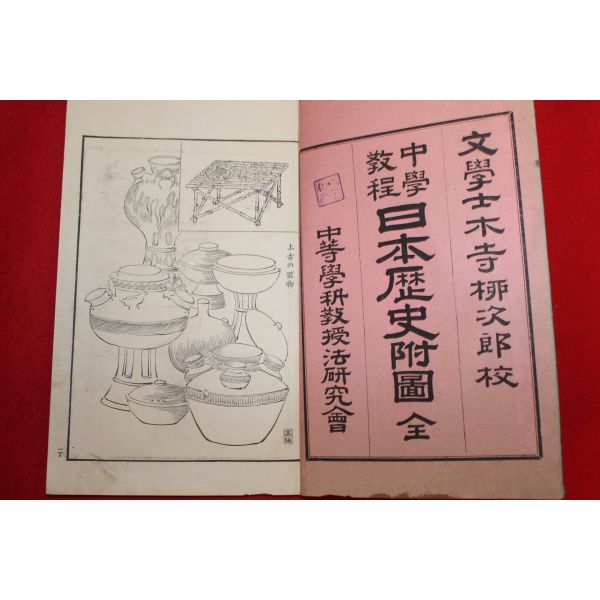 文學士木寺柳次郎校
中學教程
日本歴史附圖 全
中等學科教授法研究會
上古の器物